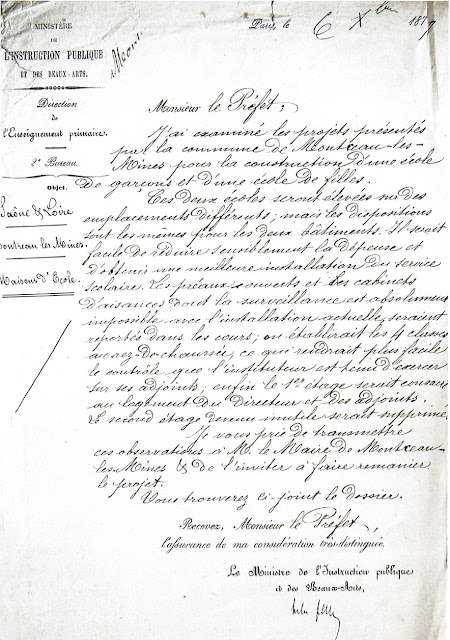 MINISTÈRE
DE
L'INSTRUCTION PUBLIQUE
ET DES BEAUX-ARTS.
Direction
de
l'Enseignement primaire.
2e Bureau.
Objet.
Saône & Loire
Montceau les Mines.
Maisons d'École.
Paris, le 6 Xbre 1879
Monsieur le Préfet,
J'ai examiné les projets présentés
par la commune de Montceau-les-
Mines pour la construction d'une école
de garçons et d'une école de filles.
Ces deux écoles seront élevées sur des
emplacements différents ; mais les dispositions
sont les mêmes pour les deux bâtiments. Il serait
facile de réduire sensiblement la dépense et
d'obtenir une meilleure installation du service
scolaire. Les préaux couverts et les cabinets
d'aisances dont la surveillance est absolument
impossible avec l'installation actuelle, seraient
reportés dans les cours ; on établirait les 4 classes
au rez-de-chaussée, ce qui rendrait plus facile
le contrôle que l'instituteur est tenu d'exercer
sur ses adjoints ; enfin le 1er étage serait consacré
au logement du Directeur et des adjoints.
Le second étage devenu inutile serait supprimé.
Je vous prie de transmettre
ces observations à M. le Maire de Montceau-
les-Mines & de l'inviter à faire remanier
le projet.
Vous trouverez ci-joint le dossier.
Recevez, Monsieur le Préfet,
l'assurance de ma considération très-distinguée.
Le Ministre de l'Instruction publique
et des Beaux-Arts,
Jules Ferry